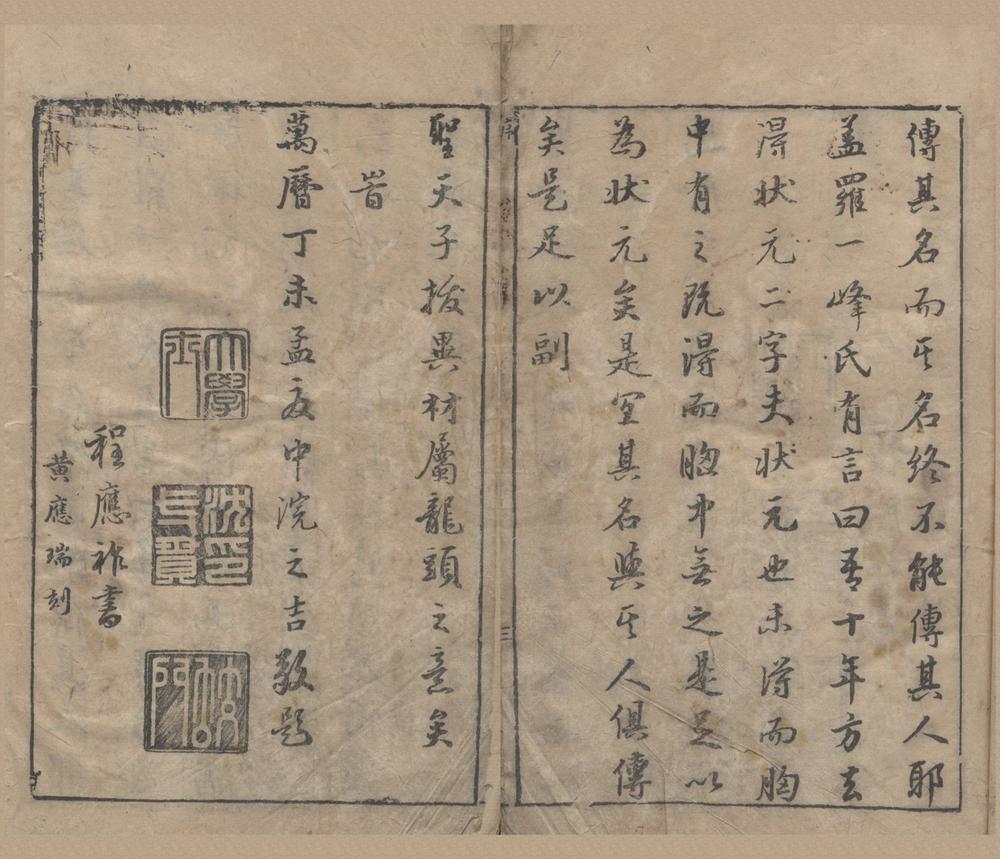 傳其名而其名終不能傳其人耶
盖羅一峰氏有言曰吾十年方去
得狀元二字夫狀元也未得而胸
中有之既得而胸中無之是足以
為狀元矣是宜其名與其人俱傳
矣是足以副
序 三
聖天子拔異材屬龍頭之意矣
旹
萬曆丁未孟夏中浣之吉敬題
大學士
程應祚書
黃應瑞刻